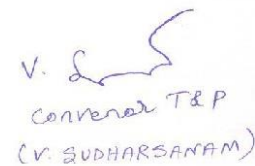 V. S
Convenor T&P
(V. SUDHARSANAM)